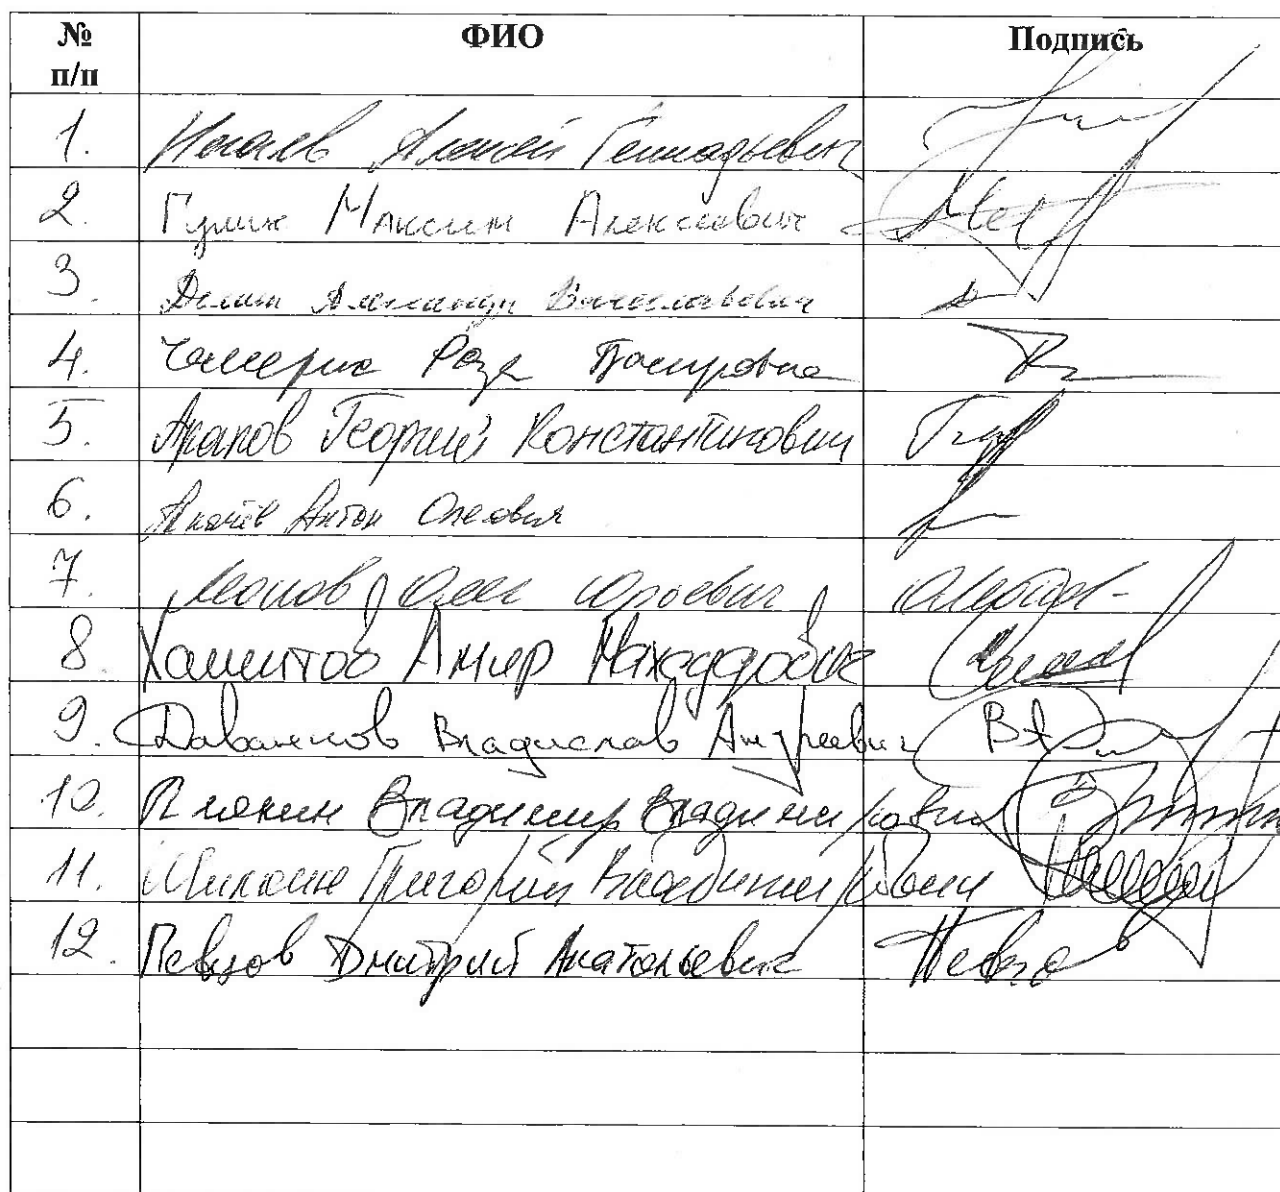 № п/п ФИО Подпись
1. Нечаев Алексей Геннадьевич
2. Гулин Максим Алексеевич
3. Демин Александр Вячеславович
4. Чемерис Роза Басировна
5. Арапов Георгий Константинович
6. Ткачёв Антон Олегович
7. Леонов Олег Юрьевич
8. Хамитов Амир Маххдрович
9. Даванков Владислав Андреевич
10. Плякин Владимир Владимирович
11. Шилкин Григорий Владимирович
12. Певцов Дмитрий Анатольевич Певцов